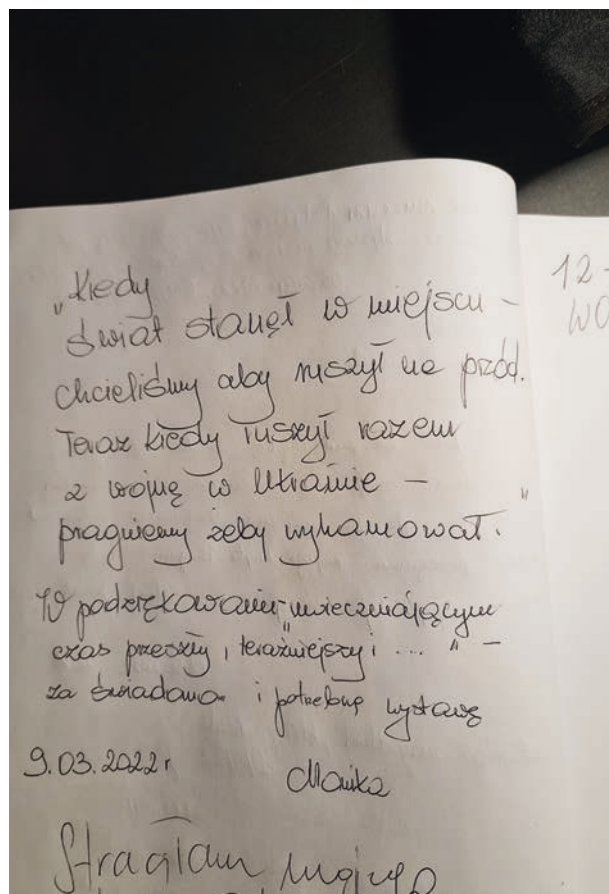 „Kiedy
świat stanął w miejscu –
chcieliśmy aby ruszył na przód.
Teraz kiedy ruszył razem
z wojną w Ukrainie –
pragniemy żeby wyhamował."
W podziękowaniu uwieczniającym
czas przeszły, teraźniejszy i „..." –
za świadomą i potrzebną wystawę
9.03.2022r
Monika
12-
WO